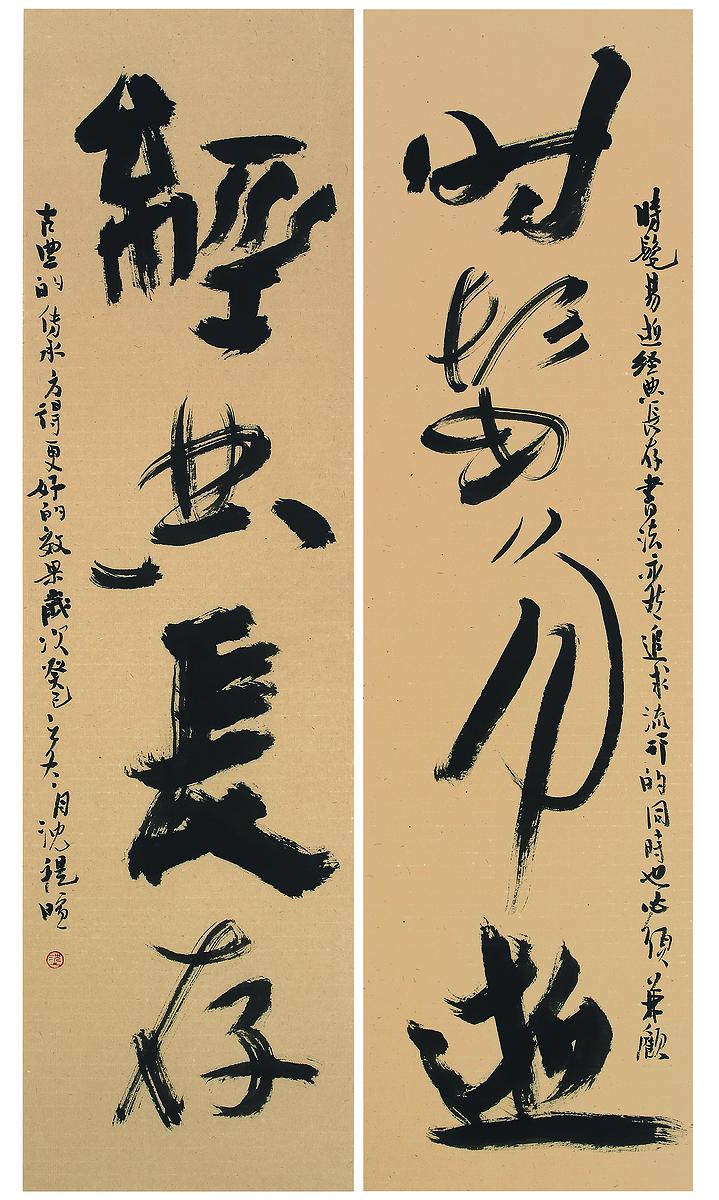 時髦易逝经典長存書法亦於追求流行的同時也必須兼顧
时髦易逝
經典長存
古典的传承方得更好的效果歲次癸巳之六月沈禔暄